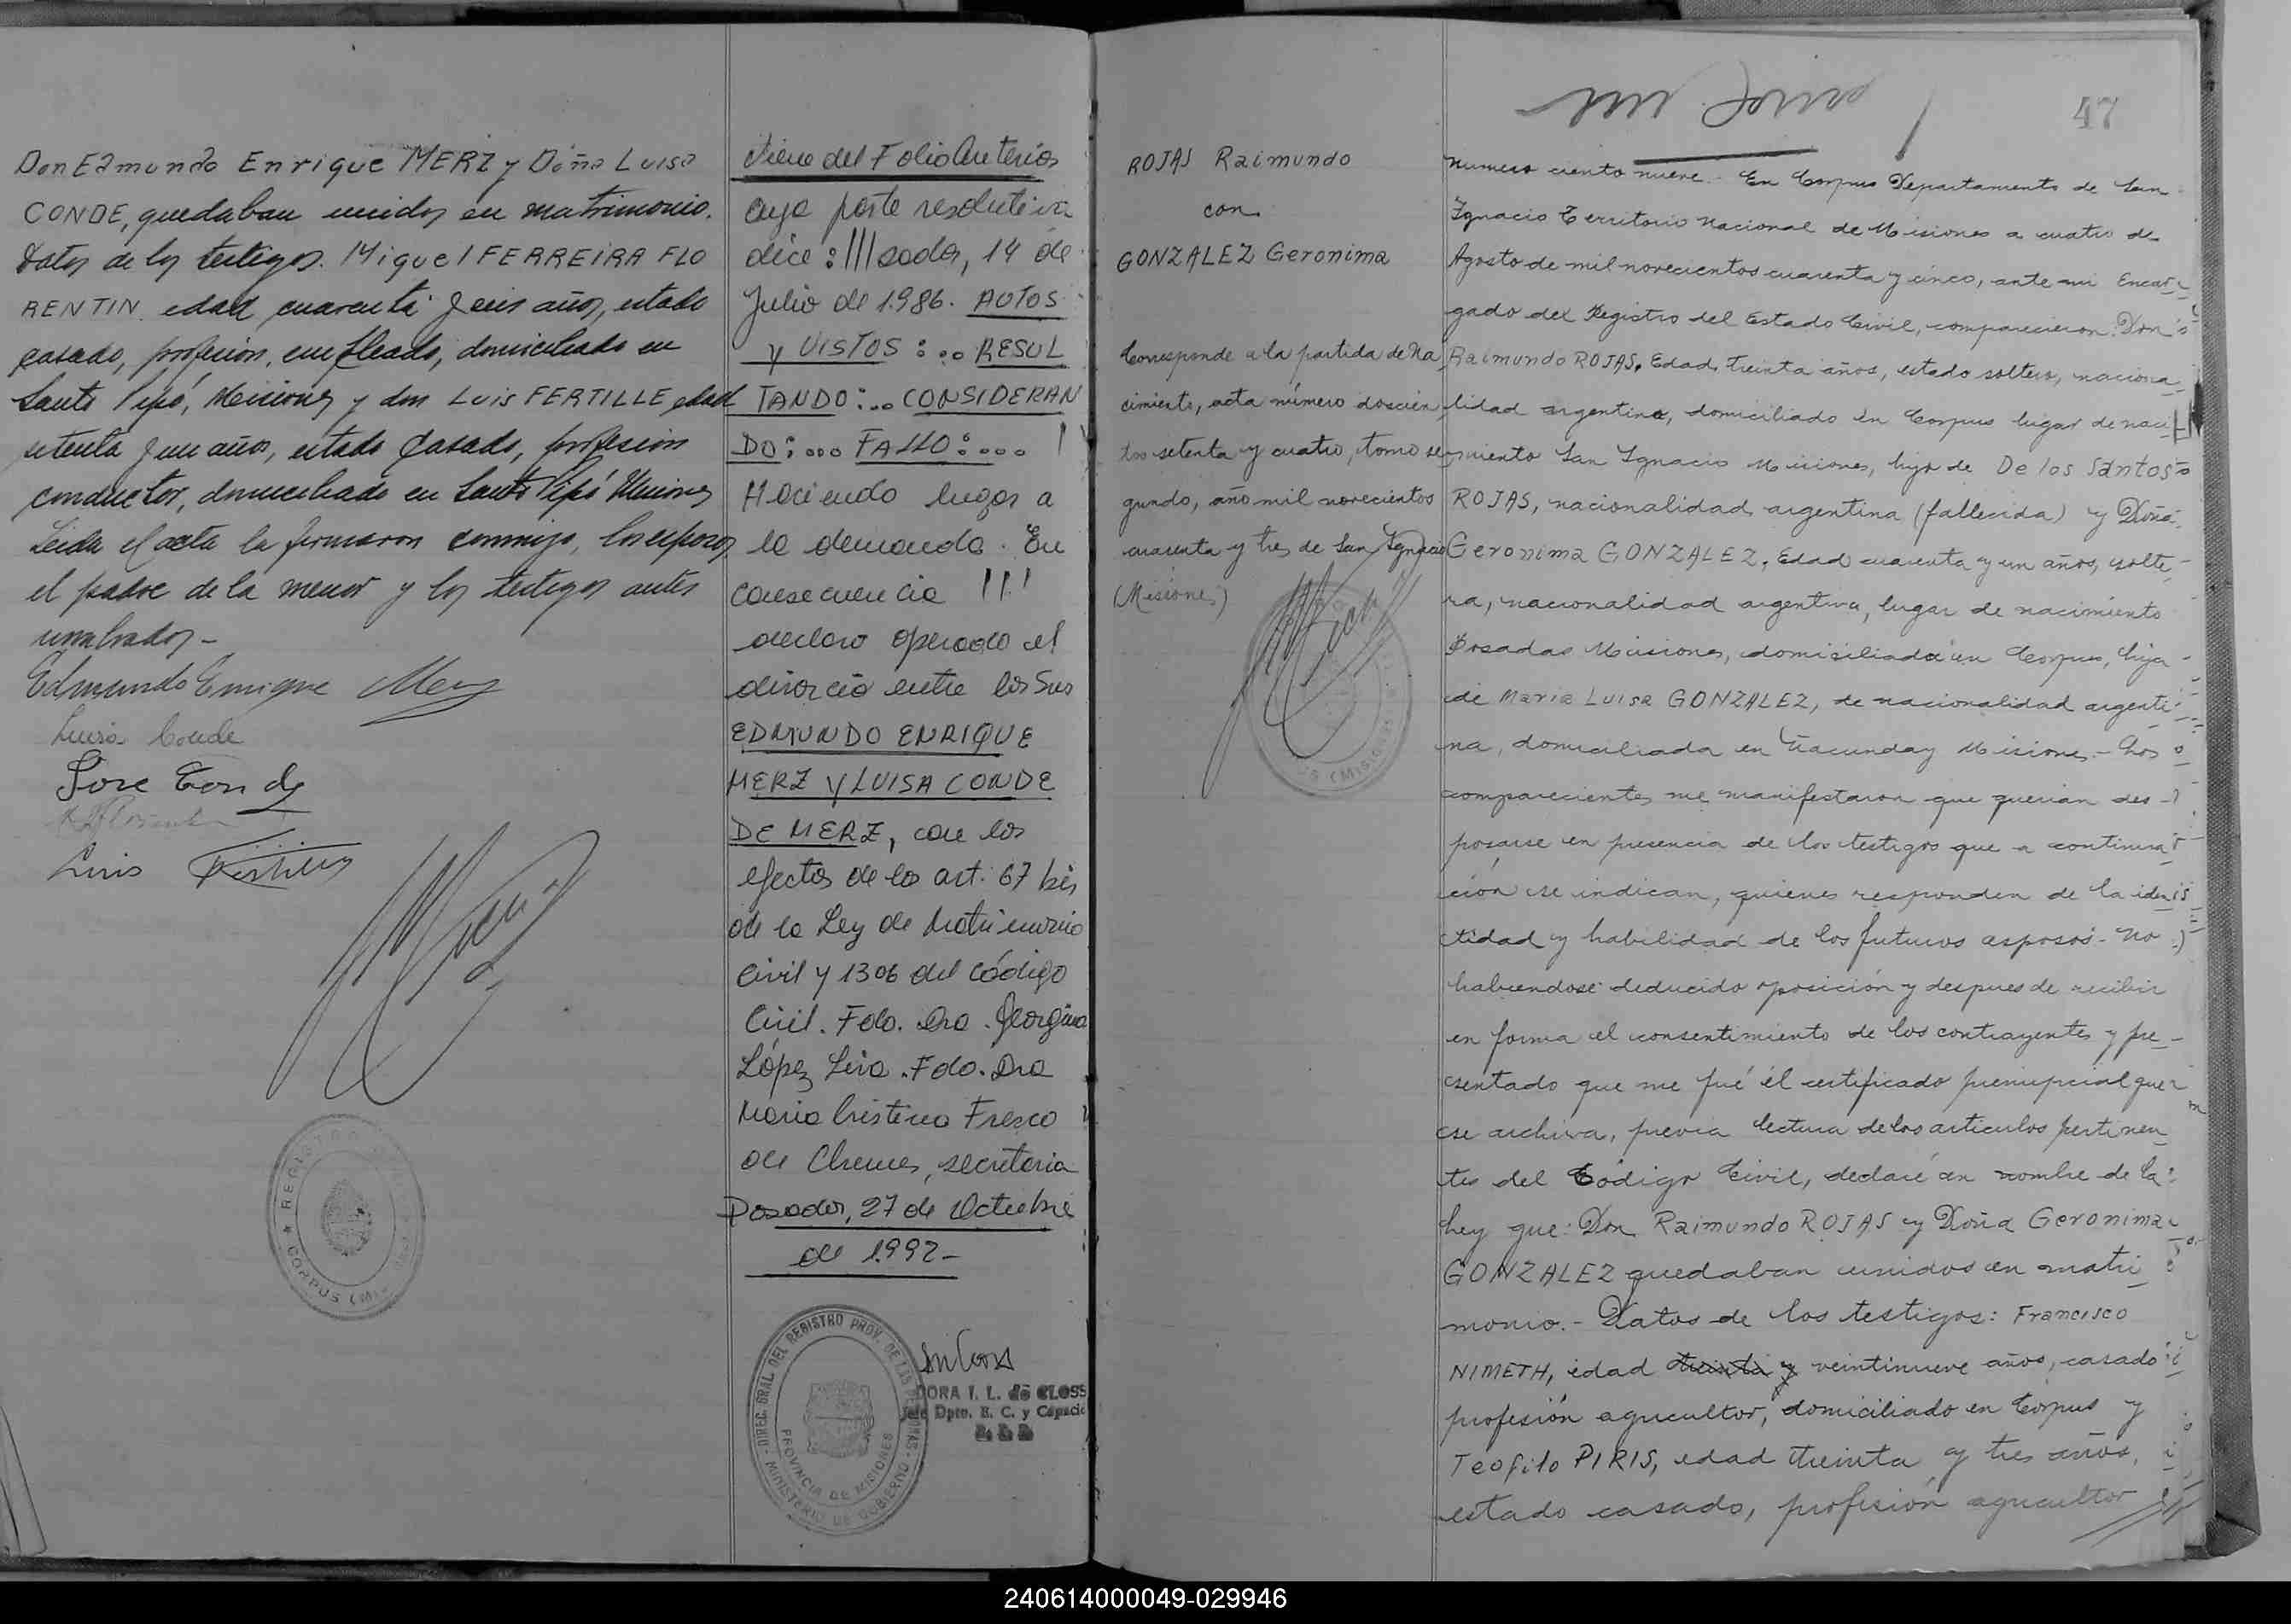 Don Edmundo Enrique MERZ y Doña Luisa
CONDE, quedaban unidos en matrimonio.
Datos de los testigos. Miguel FERREIRA FLO
RENTIN edad cuarenta y seis años, estado
casado, profesion, empleado, domiciliado en
Santo Pipó, Misiones y don Luis FERTILLE edad
setenta y un años, estado casado, profesion
conductor, domiciliado en Santo Pipó Misiones
Leida el acta la firmaron conmigo, los esposos
el padre de la menor y los testigos antes
nombrados -
Edmundo Enrique Merz
Luisa Conde
Jose Conde
Luis
REGISTRO
CORPUS (MIS
Viene del Folio Anterior
cuya parte resolutiva
dice: ///sadas, 14 de
Julio de 1.986. AUTOS
y VISTOS:... RESUL
TANDO:... CONSIDERAN
DO:... FALLO:...
Haciendo lugar a
la demanda. En
consecuencia !!!
declaro operado el
divorcio entre los Sres
EDMUNDO ENRIQUE
MERZ y LUISA CONDE
DE MERZ, con los
efectos de la art. 67 bis
de la Ley de Matrimonio
Civil y 1306 del Código
Civil. Fdo. Dra. Georgina
López Liva. Fdo. Dra
Maria Cristina Fresco
de Chemes, secretaria
Posadas, 27 de Octubre
de 1.992-
DIREC. GRAL. DEL REGISTRO PROV. DE LAS PERSONAS
MINISTERIO DE GOBIERNO
PROVINCIA DE MISIONES
DORA I. L. de CLOSS
Jefe Dpto. E. C. y Capacid
47
ROJAS Raimundo
con
GONZALEZ Geronima
Corresponde a la partida de Na
cimiento, acta número doscien
tos setenta y cuatro, tomo se
gundo, año mil novecientos
cuarenta y tres de San Ignacio
(Misiones)
(MISIONES
Numero ciento nueve.- En Corpus Departamento de San
Ignacio Territorio Nacional de Misiones a cuatro de
Agosto de mil novecientos cuarenta y cinco, ante mi Encar
gado del Registro del Estado Civil, comparecieron: Don
Raimundo ROJAS. Edad, treinta años, estado soltero, naciona
lidad argentina, domiciliado en Corpus lugar de naci
miento San Ignacio Misiones, hijo de De los Santos
ROJAS, nacionalidad argentina (fallecida) y Doña
Geronima GONZALEZ. Edad cuarenta y un años, solte
ra, nacionalidad argentina, lugar de nacimiento
Posadas Misiones, domiciliada en Corpus, hija
de Maria Luisa GONZALEZ, de nacionalidad argenti
na, domiciliada en Ñacunday Misiones.- Los
comparecientes me manifestaron que querian des
posarse en presencia de los testigos que a continua
ción se indican, quienes responden de la iden
tidad y habilidad de los futuros esposos- No
habiendose deducido oposición y despues de recibir
en forma el consentimiento de los contrayentes y pre
sentado que me fué el certificado prenupcial que
se archiva, previa lectura de los articulos pertinen
tes del Código Civil, declaré en nombre de la
Ley que: Don Raimundo ROJAS y Doña Geronima
GONZALEZ quedaban unidos en matri
monio.- Datos de los testigos: Francisco
NIMETH, edad treinta y veintinueve años, casado
profesión agricultor, domiciliado en Corpus y
Teofilo PIRIS, edad treinta y tres años,
estado casado, profesión agricultor
240614000049-029946